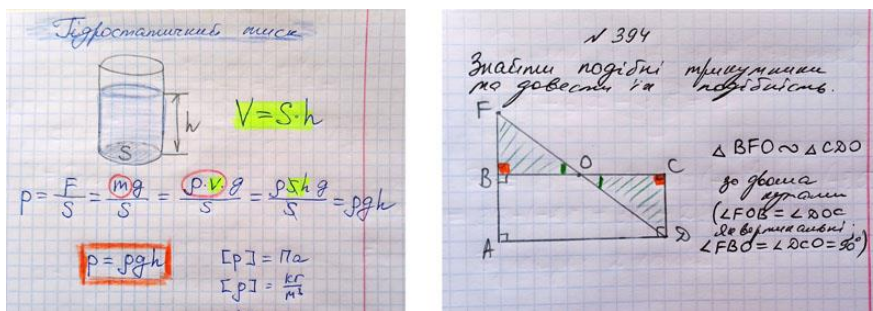 Гідростатичний тиск
h
S
V = S·h
p = F/S = mg/S = ρ·V·g/S = ρShg/S = ρgh
p = ρgh
[p] = Па
[ρ] = кг/м³
N 394
Знайти подібні трикутники
та довести їх подібність.
F
O
B
C
A
D
△ BFO ∾ △ CDO
за двома
кутами
(∠FOB = ∠DOC
як вертикальні;
∠FBO = ∠DCO = 90°)